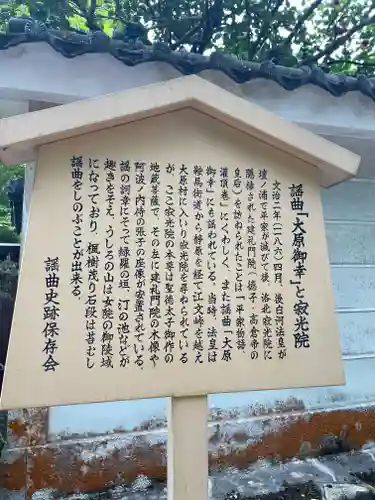 謡曲「大原御幸」と寂光院
文治二年(一一八六)四月、後白河法皇が
壇ノ浦で平家が滅びて後、洛北寂光院に
隠棲された建礼門院(徳子・高倉帝の
皇后)を訪ねられたことは「平家物語、
灌頂巻」にくわしく、また謡曲「大原
御幸」にも謡われている。当時、法皇は
鞍馬街道から静原を経て江文峠を越え
大原村に入り寂光院を尋ねられている
が、ここ寂光院の本尊は聖徳太子御作の
地蔵菩薩で、その左に建礼門院の木像や
阿波ノ内侍の張子の座像が安置されている。
謡の詞章にそって緑羅の垣、汀の池などが
趣きをそえ、うしろの山は女院の御陵域
になっており、樹樹茂り石段は苔むし
謡曲をしのぶことが出来る。
謡曲史跡保存会